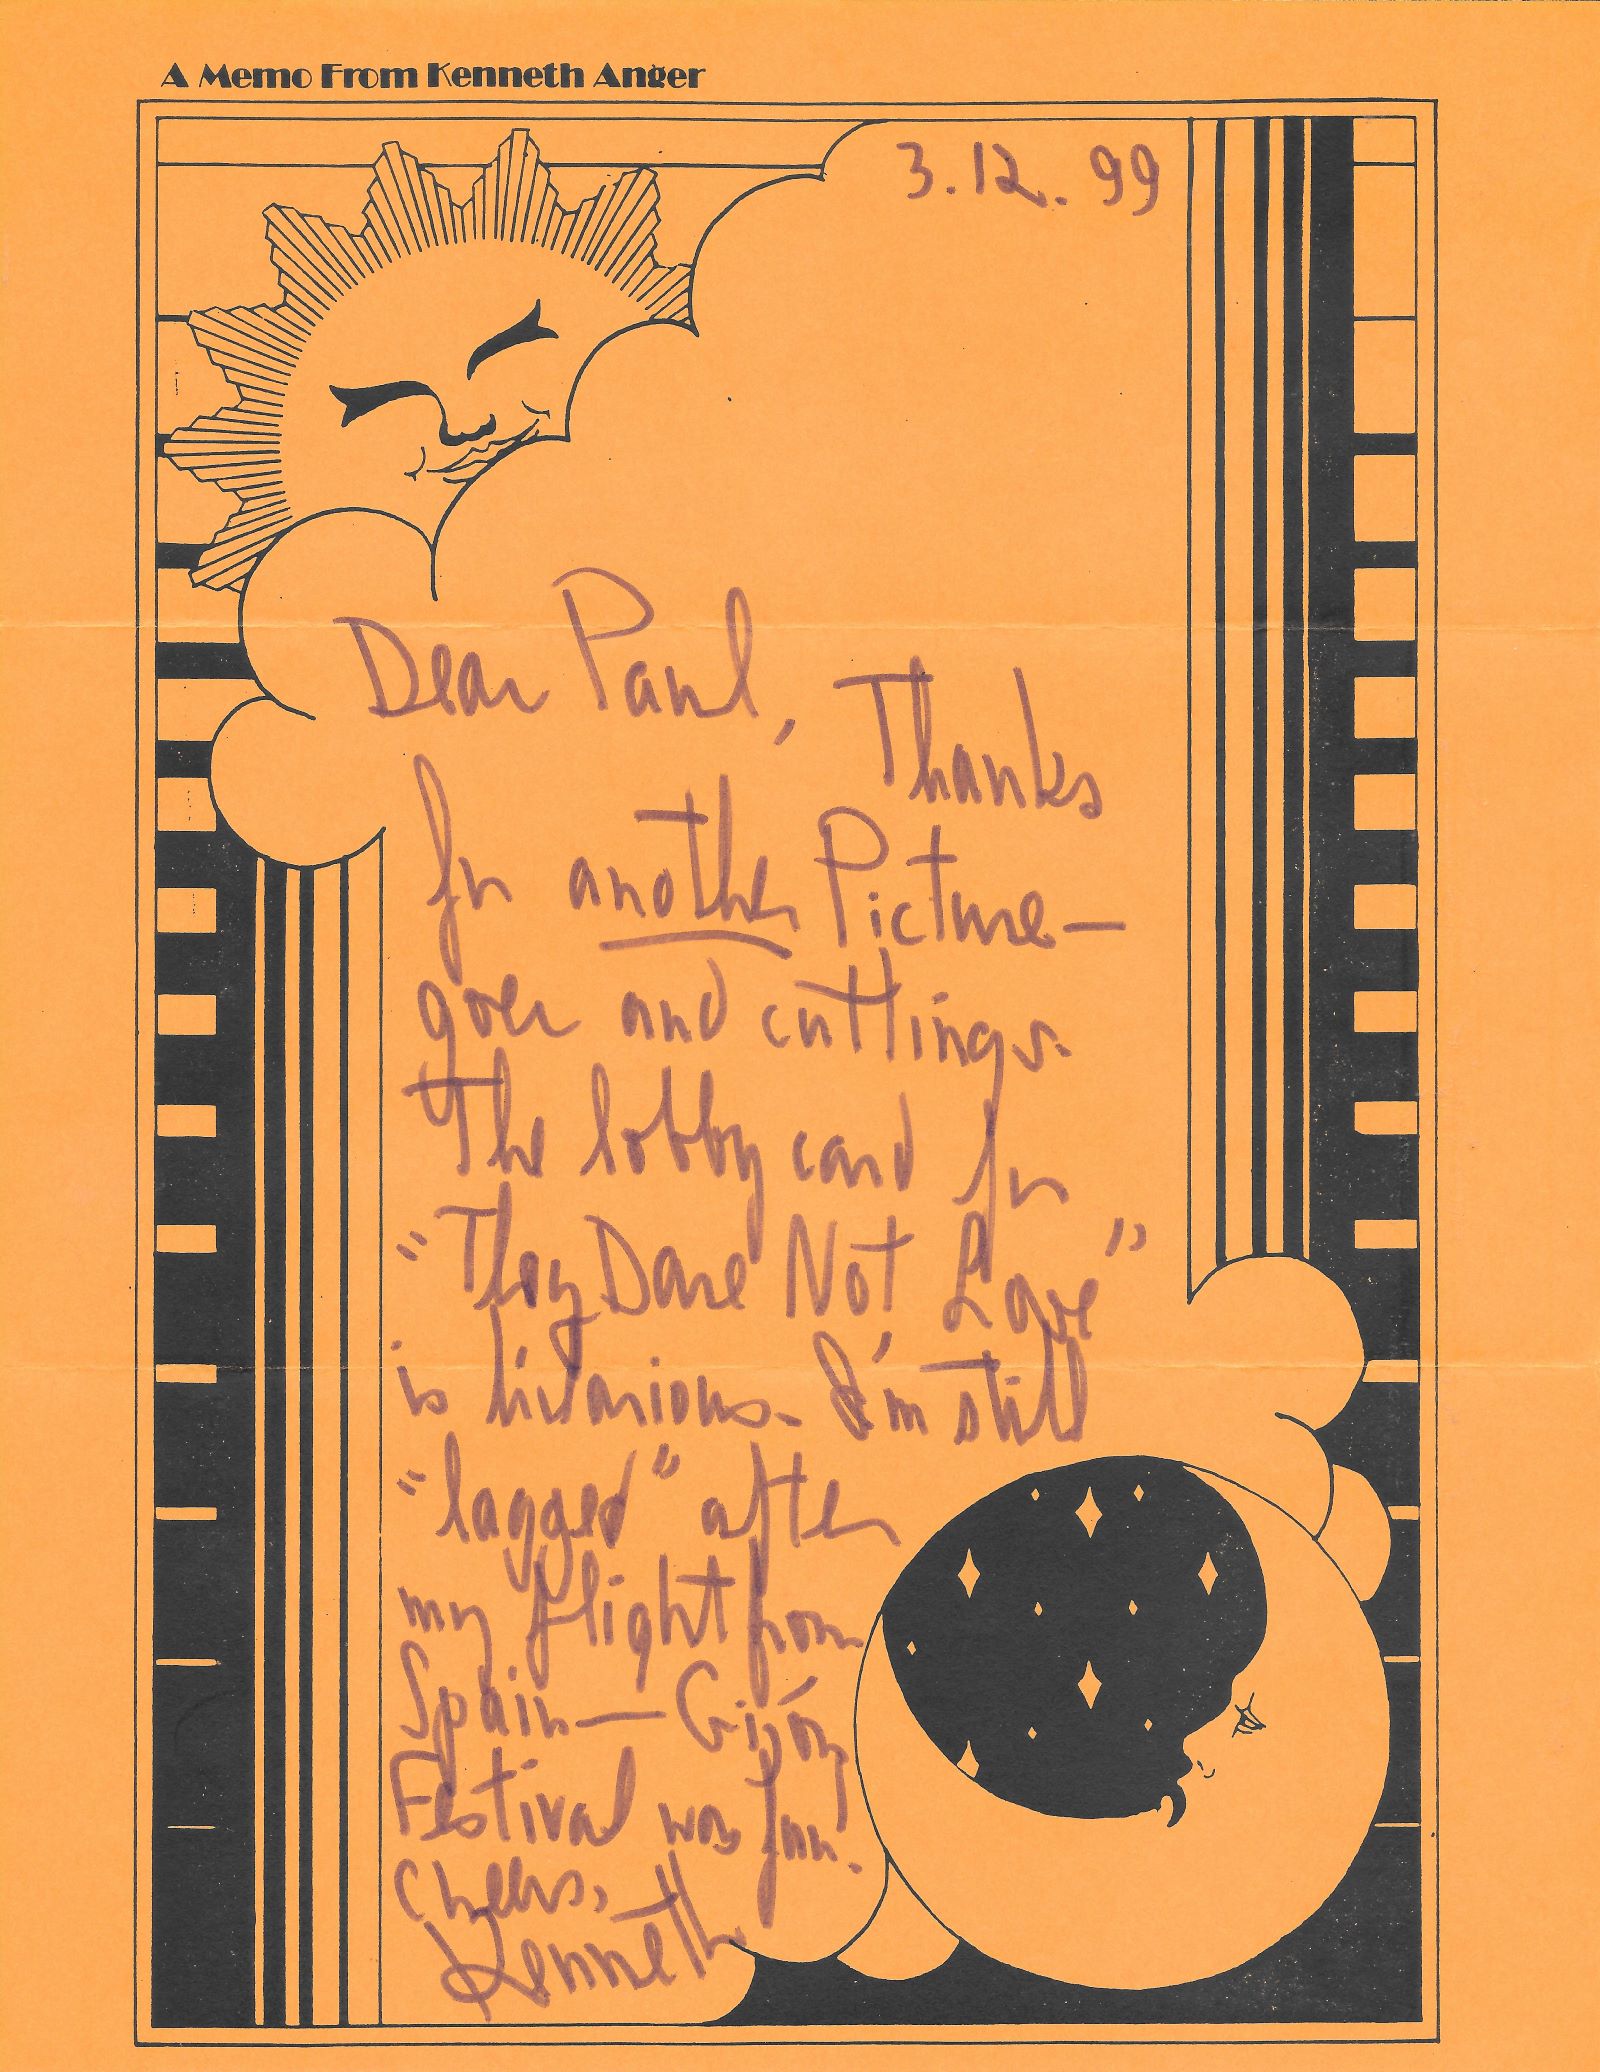 A Memo From Kenneth Anger
3.12.99
Dear Paul, Thanks
for another Picture—
goer and cuttings.
The lobby card for
"They Dare Not Love"
is hilarious. I'm still
"lagged" after
my flight from
Spain — Gijón
Festival was fun!
Cheers,
Kenneth